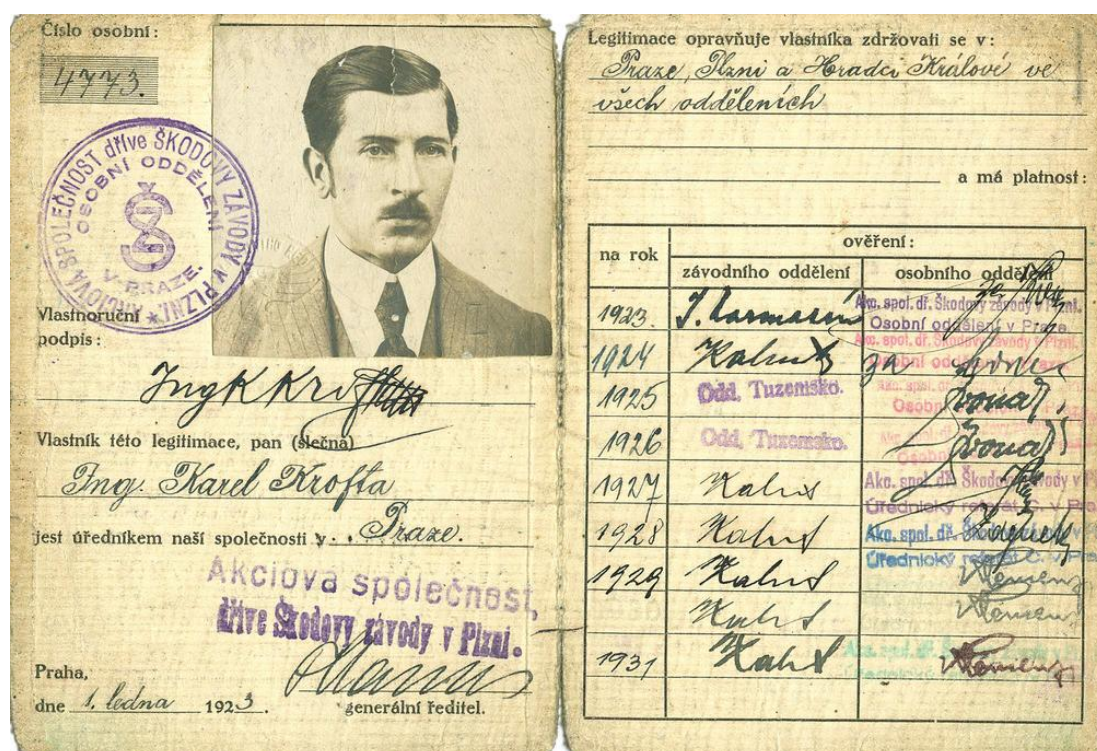 Číslo osobní:
4773.
AKCIOVÁ SPOLEČNOST dříve ŠKODOVY ZÁVODY v PLZNI.
OSOBNÍ ODDĚLENÍ
V PRAZE.
Vlastnoruční
podpis:
Ing K Krofta
Vlastník této legitimace, pan (slečna)
Ing. Karel Krofta
jest úředníkem naší společnosti v Praze.
Akciová společnost,
dříve Škodovy závody v Plzni.
Praha,
dne 1. ledna 1923.
generální ředitel.
Legitimace opravňuje vlastníka zdržovati se v:
Praze, Plzni a Hradci Králové ve
všech odděleních
a má platnost:
na rok
ověření:
závodního oddělení osobního oddělení
1923. Akc. spol. dř. Škodovy závody v Plzni.
Osobní oddělení v Praze.
1924 Akc. spol. dř. Škodovy závody v Plzni.
za
1925 Odd. Tuzemsko.
1926 Odd. Tuzemsko.
1927 Akc. spol. dř. Škodovy závody v
Úřednický referát C. v
1928 Akc. spol. dř.
Úřednický referát C. v
1929
1931